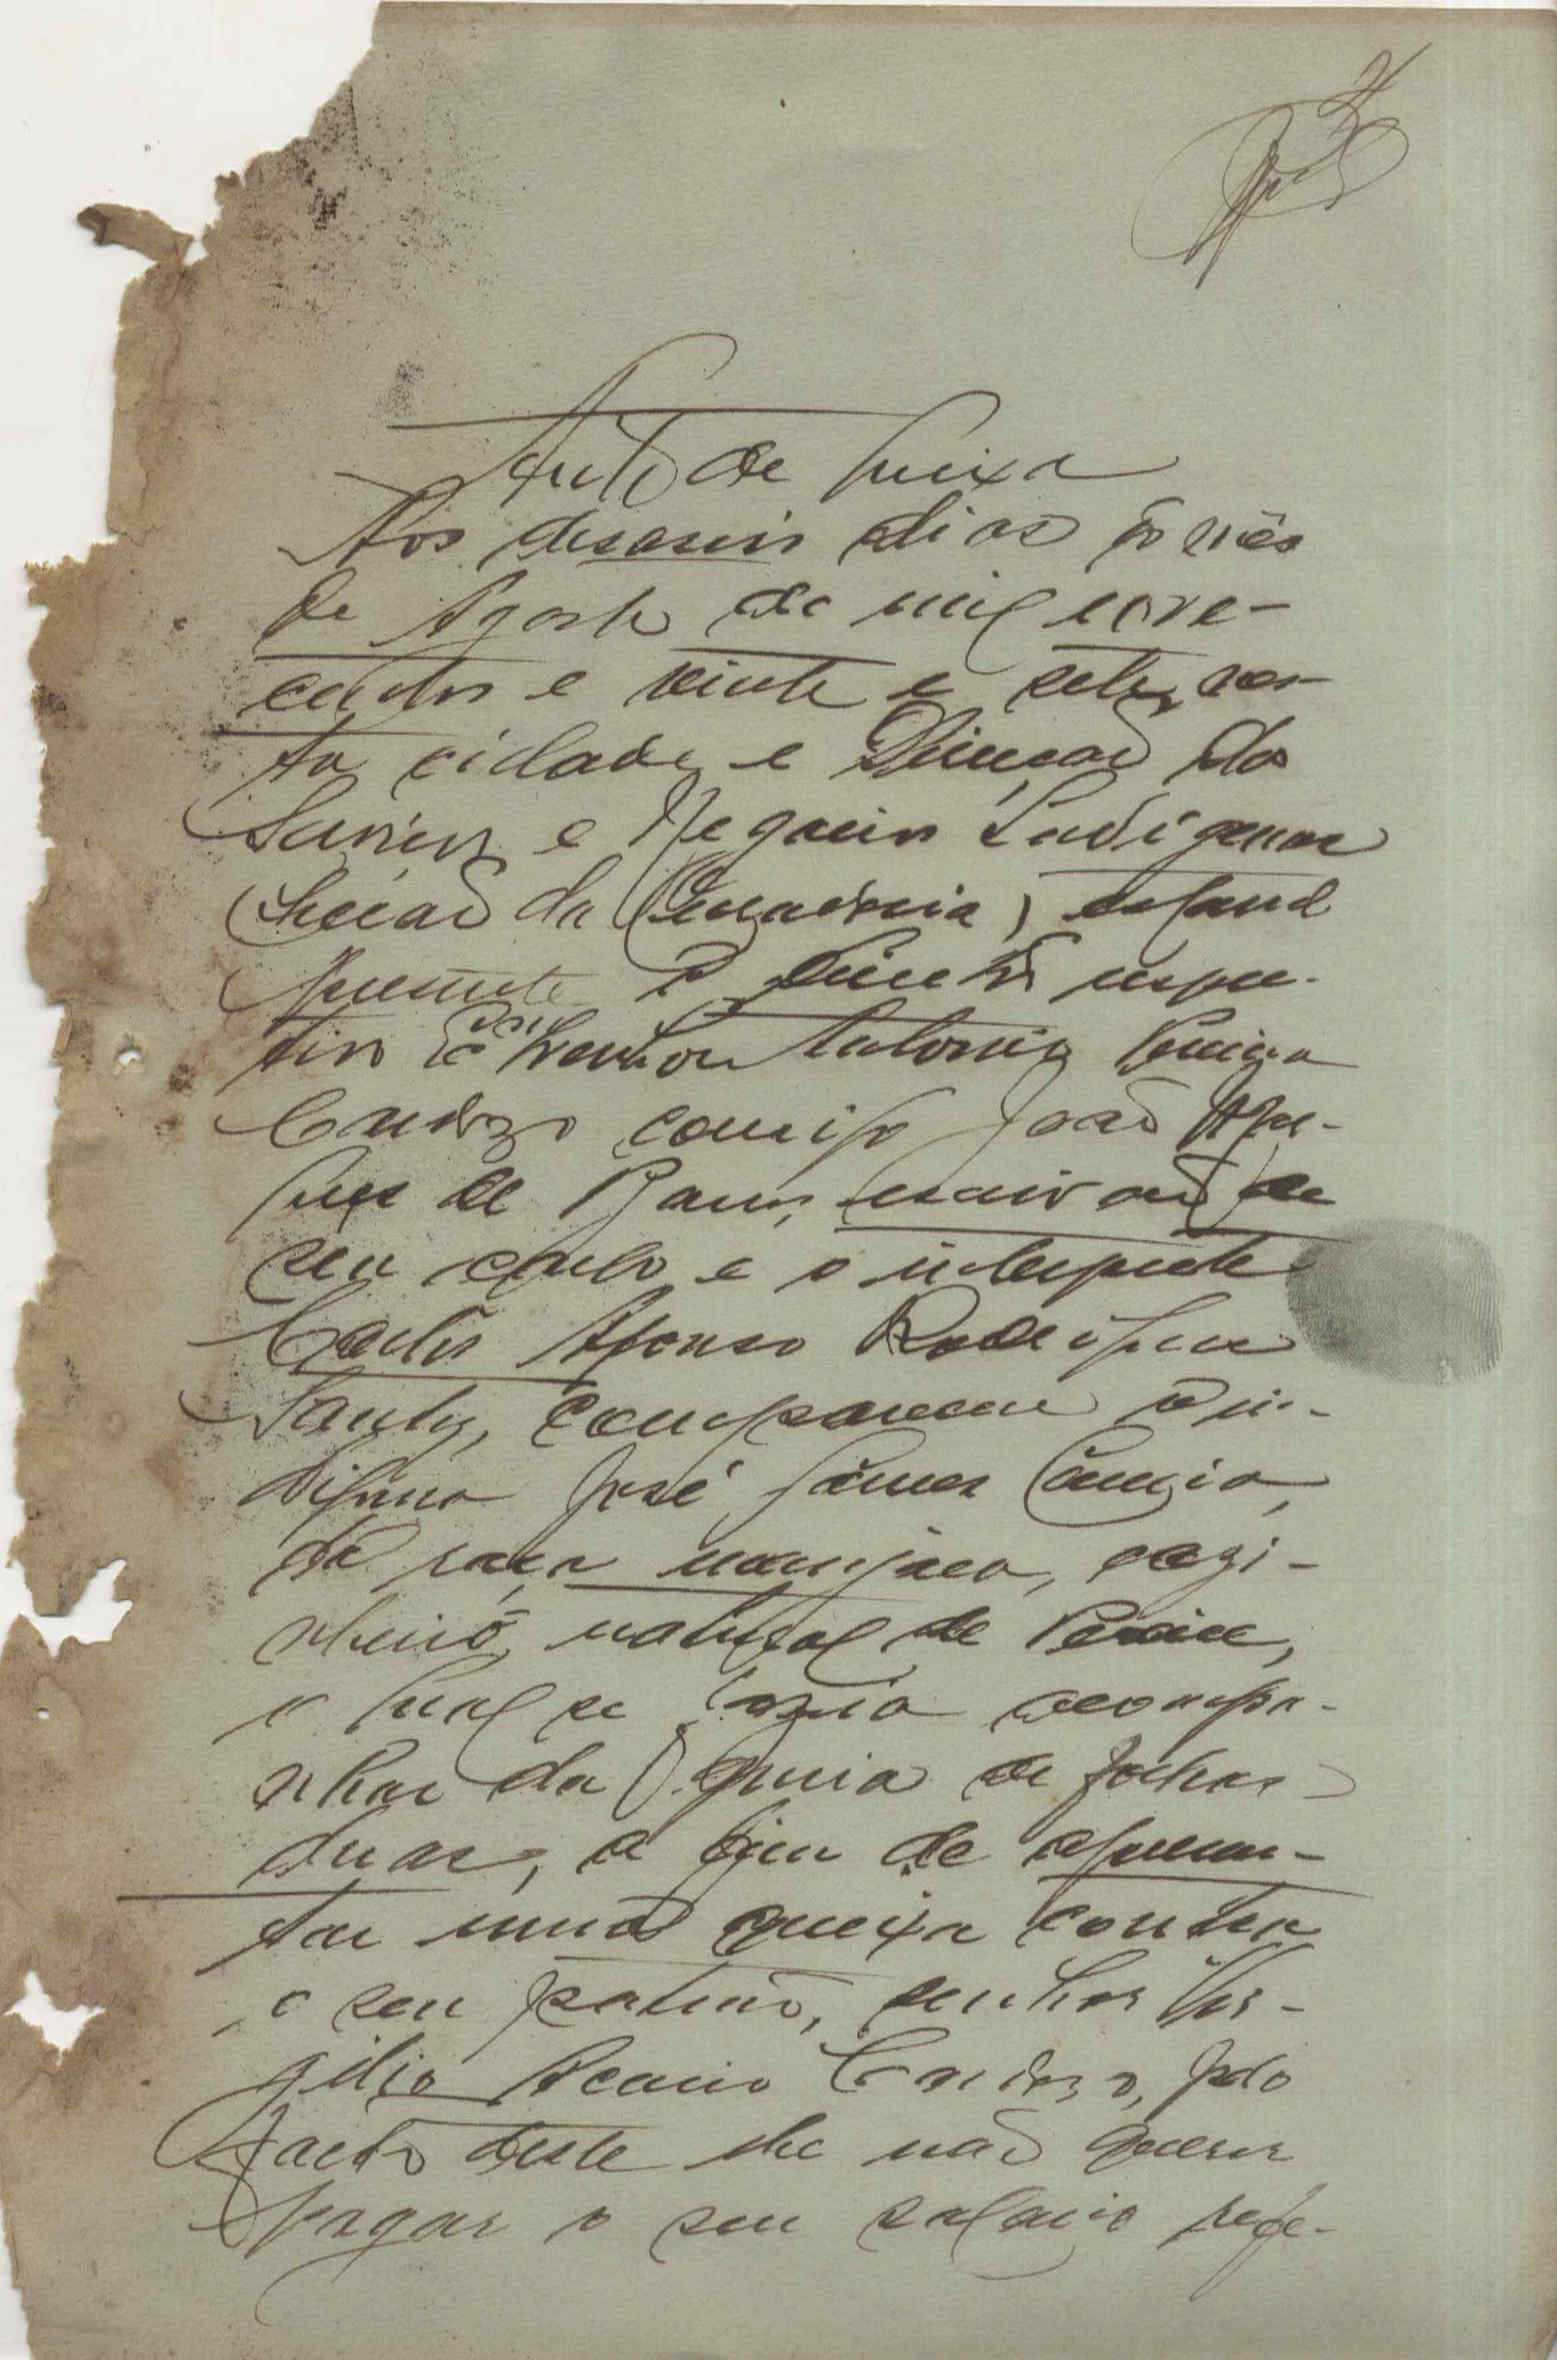 Auto de queixa
Aos desaseis dias do mês
de Agosto de mil nove-
centos e vinte e sete, nes-
ta cidade e Direcção dos
Serviços e Negocios Indigenas
(Secção da Curadoria), estand
presente o Director respec-
tivo Senhor Antonio Pereira
Cardozo comigo João
de Barros, escrivão de
seu cargo e o interprete
Carlos Afonso Rodrigues
Santos, compareceu o in-
digena José Gomes
da raça manjaca,
natural de Pecixe,
o qual se fazia acompa-
nhar da guia de folhas
duas, a fim de apresen-
tar uma queixa contra
o seu patrão, senhor Vir-
gilio Acacio Cardozo, pelo
facto deste lhe não querer
pagar o seu salario refe-